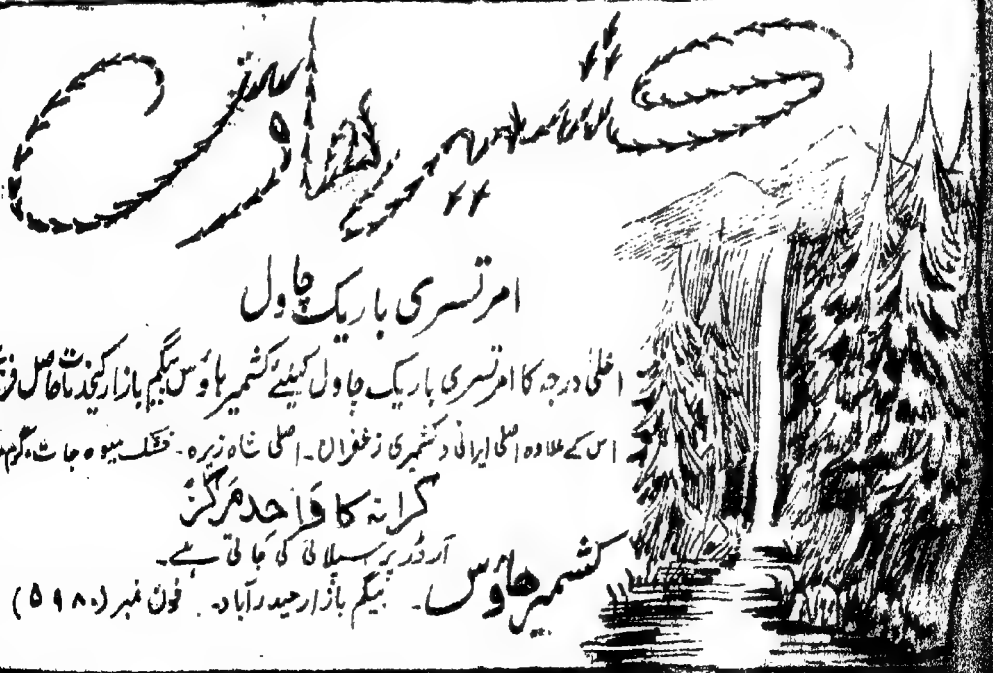 کشمیر ہاؤس
امرتسری باریک چاول
اعلٰی درجہ کا امرتسری باریک چاول کیلئے کشمیر ہاؤس بیگم بازار کیخدمات حاصل
اس کے علاوہ اصلی ایرانی و کشمیری زعفران۔ اصلی شاہ زیرہ۔ خشک میوہ جات، گرم
کرانہ کا واحد مرکز
آرڈر پر سپلائی کی جاتی ہے۔
کشمیر ہاؤس ۔ بیگم بازار حیدرآباد۔ فون نمبر (۵۹۸۰)